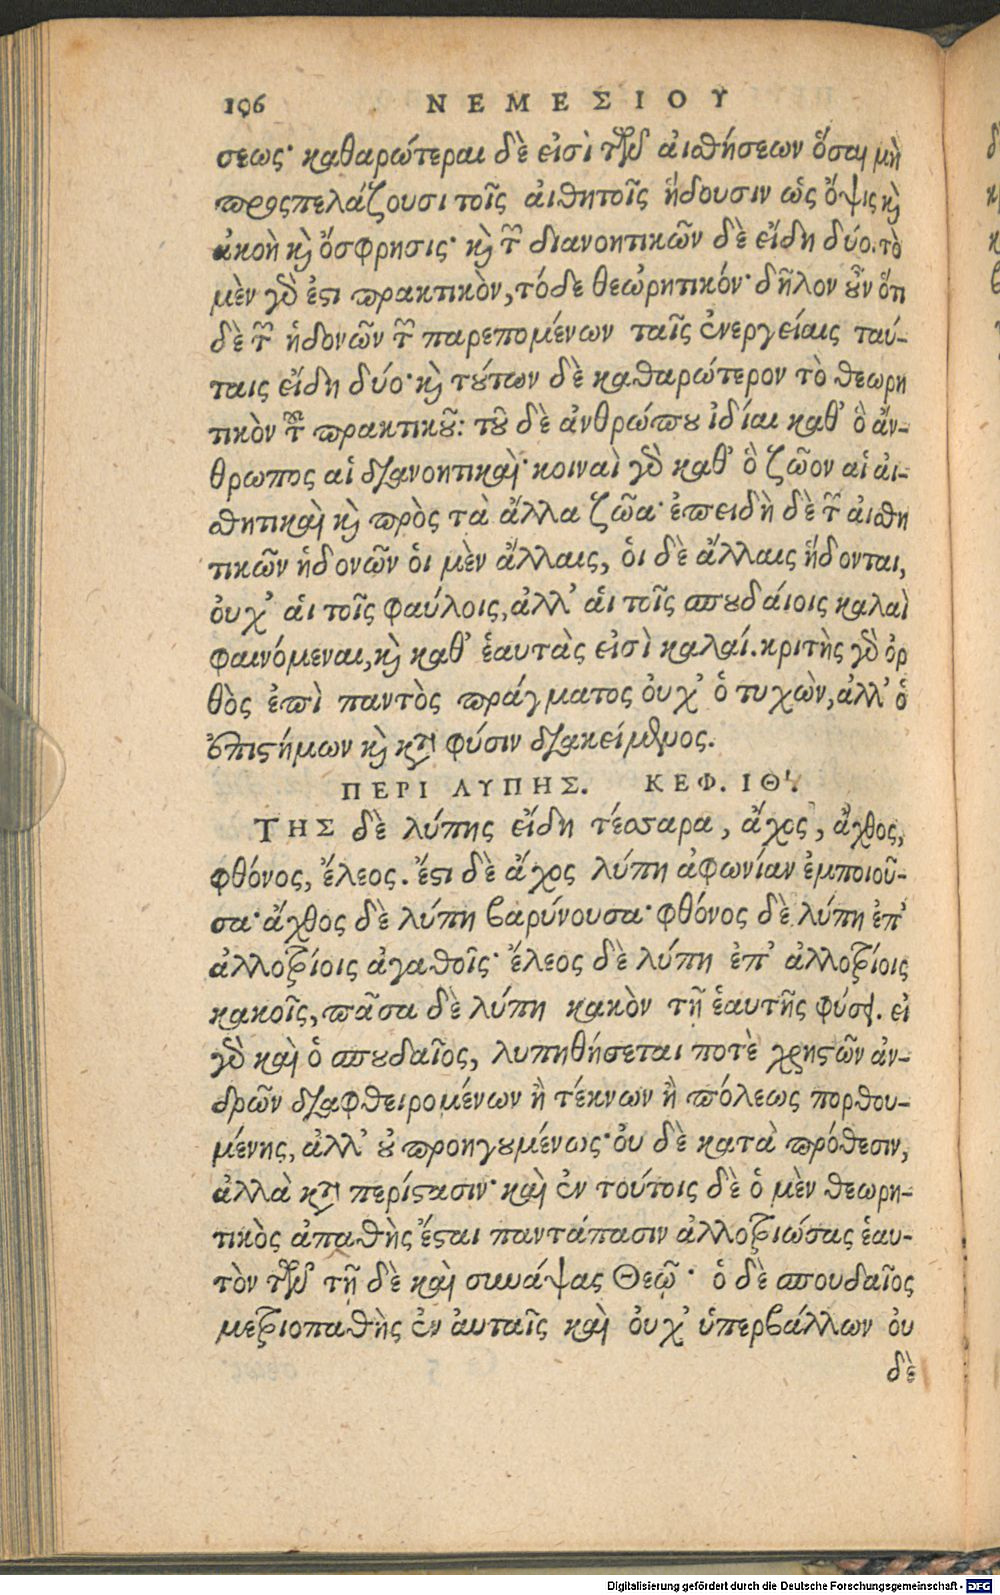 106 ΝΕΜΕΣΙΟΥ
σεως· καθαρώτεραι δὲ εἰσὶ τῶν αἰσθήσεων ὅσαι μὴ
προςπελάζουσι τοῖς αἰσθητοῖς ἥδουσιν ὡς ὄψις καὶ
ἀκοὴ καὶ ὄσφρησις· καὶ τῶν διανοητικῶν δὲ εἴδη δύο. τὸ
μὲν γὰρ ἐστι πρακτικὸν, τόδε θεώρητικόν· δῆλον οὖν ὅτι
δὲ τῶν ἡδονῶν τῶν παρεπομένων ταῖς ἐνεργείαις ταύ-
ταις εἴδη δύο· καὶ τούτων δὲ καθαρώτερον τὸ θεωρη
τικὸν τοῦ πρακτικοῦ: τοῦ δὲ ἀνθρώπου ἰδίαι καθ' ὃ ἄν-
θρωπος αἱ διανοητικαὶ· κοιναὶ γὰρ καθ' ὃ ζῶον αἱ αἰ-
σθητικαὶ καὶ πρὸς τὰ ἄλλα ζῶα· ἐπειδὴ δὲ τῶν αἰσθη
τικῶν ἡδονῶν ὁι μὲν ἄλλαις, ὁι δὲ ἄλλαις ἥδονται,
ὀυχ' ἁι τοῖς φαύλοις, ἀλλ' ἁι τοῖς σπουδαίοις καλαὶ
φαινόμεναι, καὶ καθ' ἑαυτὰς εἰσὶ καλαί. κριτὴς γὰρ ὀρ
θὸς ἐπὶ παντὸς πράγματος ὀυχ' ὁ τυχὼν, ἀλλ' ὁ
ἐπιστήμων καὶ κατὰ φύσιν διακείμενος.
ΠΕΡΙ ΛΥΠΗΣ. ΚΕΦ. ΙΘ'.
ΤΗΣ δὲ λύπης εἴδη τέσσαρα, ἄχος, ἄχθος,
φθόνος, ἔλεος. ἔστι δὲ ἄχος λύπη ἀφωνίαν ἐμποιοῦ-
σα· ἄχθος δὲ λύπη βαρύνουσα· φθόνος δὲ λύπη ἐπ'
ἀλλοτρίοις ἀγαθοῖς· ἔλεος δὲ λύπη ἐπ' ἀλλοτρίοις
κακοῖς, πᾶσα δὲ λύπη κακὸν τῇ ἑαυτῆς φύσει. εἰ
γὰρ καὶ ὁ σπουδαῖος, λυπηθήσεται ποτὲ χρηστῶν ἀν-
δρῶν διαφθειρομένων ἢ τέκνων ἢ πόλεως πορθου-
μένης, ἀλλ' οὐ προηγουμένως· ὀυ δὲ κατὰ πρόθεσιν,
ἀλλὰ κατὰ περίστασιν· καὶ ἐν τούτοις δὲ ὁ μὲν θεωρη-
τικὸς ἀπαθὴς ἔσται παντάπασιν ἀλλοτριώσας ἑαυ-
τὸν τῶν τῇ δὲ καὶ συνάψας Θεῷ· ὁ δὲ σπουδαῖος
μετριοπαθὴς ἐν ἀυταῖς καὶ ὀυχ' ὑπερβάλλων ὀυ
δὲ
Digitalisierung gefördert durch die Deutsche Forschungsgemeinschaft - DFG